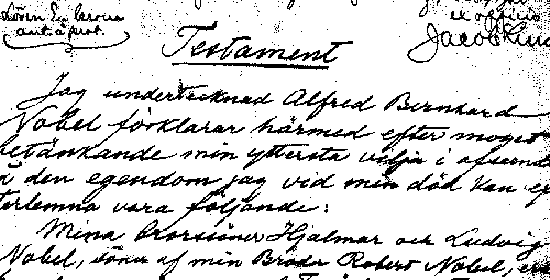 ex officio
Jacob
Testament
Jag undertecknad Alfred Bernhard
Nobel förklarar härmed efter moget
betänkande min yttersta vilja i afseende
å den egendom jag vid min död kan
terlemna vara följande:
Mina Brorsöner Hjalmar och Ludvig
Nobel, söner af min Broder Robert Nobel,